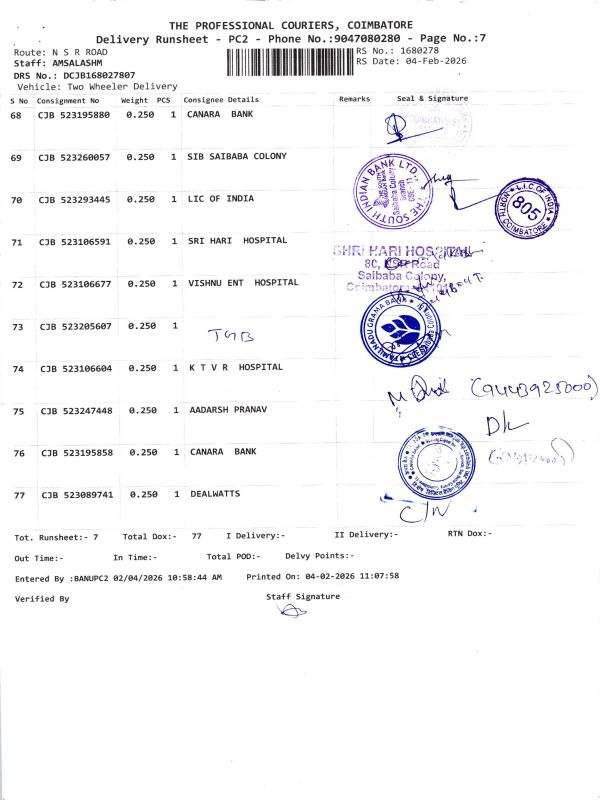 THE PROFESSIONAL COURIERS, COIMBATORE
Delivery Runsheet - PC2 - Phone No.:9047080280 - Page No.:7
Route: N S R ROAD RS No.: 1680278
Staff: AMSALASHM RS Date: 04-Feb-2026
DRS No.: DCJB168027807
Vehicle: Two Wheeler Delivery
S No Consignment No Weight PCS Consignee Details Remarks Seal & Signature
68 CJB 523195880 0.250 1 CANARA BANK
69 CJB 523260057 0.250 1 SIB SAIBABA COLONY
THE SOUTH INDIAN BANK LTD.
Saibaba Colony
Branch
70 CJB 523293445 0.250 1 LIC OF INDIA
L.I.C. OF INDIA
805
COIMBATORE NORTH
71 CJB 523106591 0.250 1 SRI HARI HOSPITAL
SHRI HARI HOSPITAL
8C, NSR Road
Saibaba Colony,
72 CJB 523106677 0.250 1 VISHNU ENT HOSPITAL
73 CJB 523205607 0.250 1 TGB
TAMILNADU GRAMA BANK
74 CJB 523106604 0.250 1 K T V R HOSPITAL
(9443925000)
75 CJB 523247448 0.250 1 AADARSH PRANAV
76 CJB 523195858 0.250 1 CANARA BANK
77 CJB 523089741 0.250 1 DEALWATTS
Tot. Runsheet:- 7 Total Dox:- 77 I Delivery:- II Delivery:- RTN Dox:-
Out Time:- In Time:- Total POD:- Delvy Points:-
Entered By :BANUPC2 02/04/2026 10:58:44 AM Printed On: 04-02-2026 11:07:58
Verified By Staff Signature